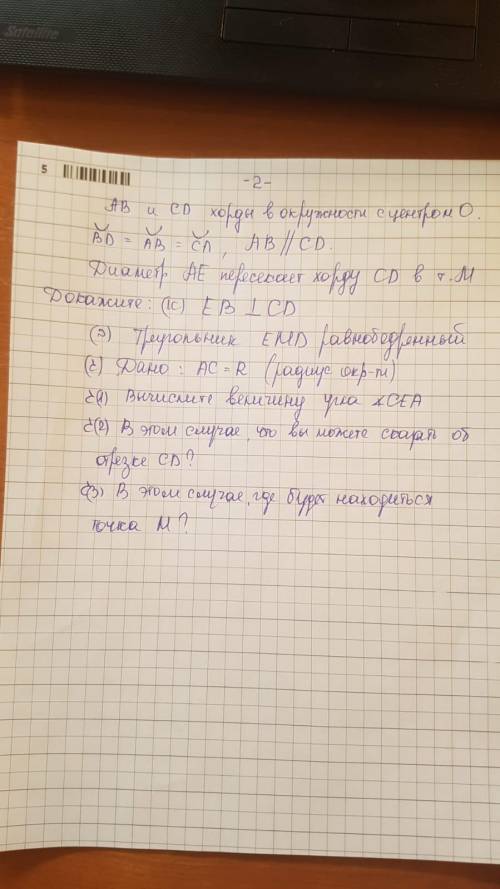 Satellite
5
-2-
AB и CD хорды в окружности с центром O.
BD = AB = CA, AB // CD.
Диаметр AE пересекает хорду CD в т. M
Докажите: (1c) EB ⊥ CD
(2) Треугольник EMD равнобедренный
(c) Дано: AC = R (радиус окр-ти)
c(1) Вычислите величину угла ∡CEA
c(2) В этом случае, что вы можете сказать об
отрезке CD?
c(3) В этом случае, где будет находиться
точка M?